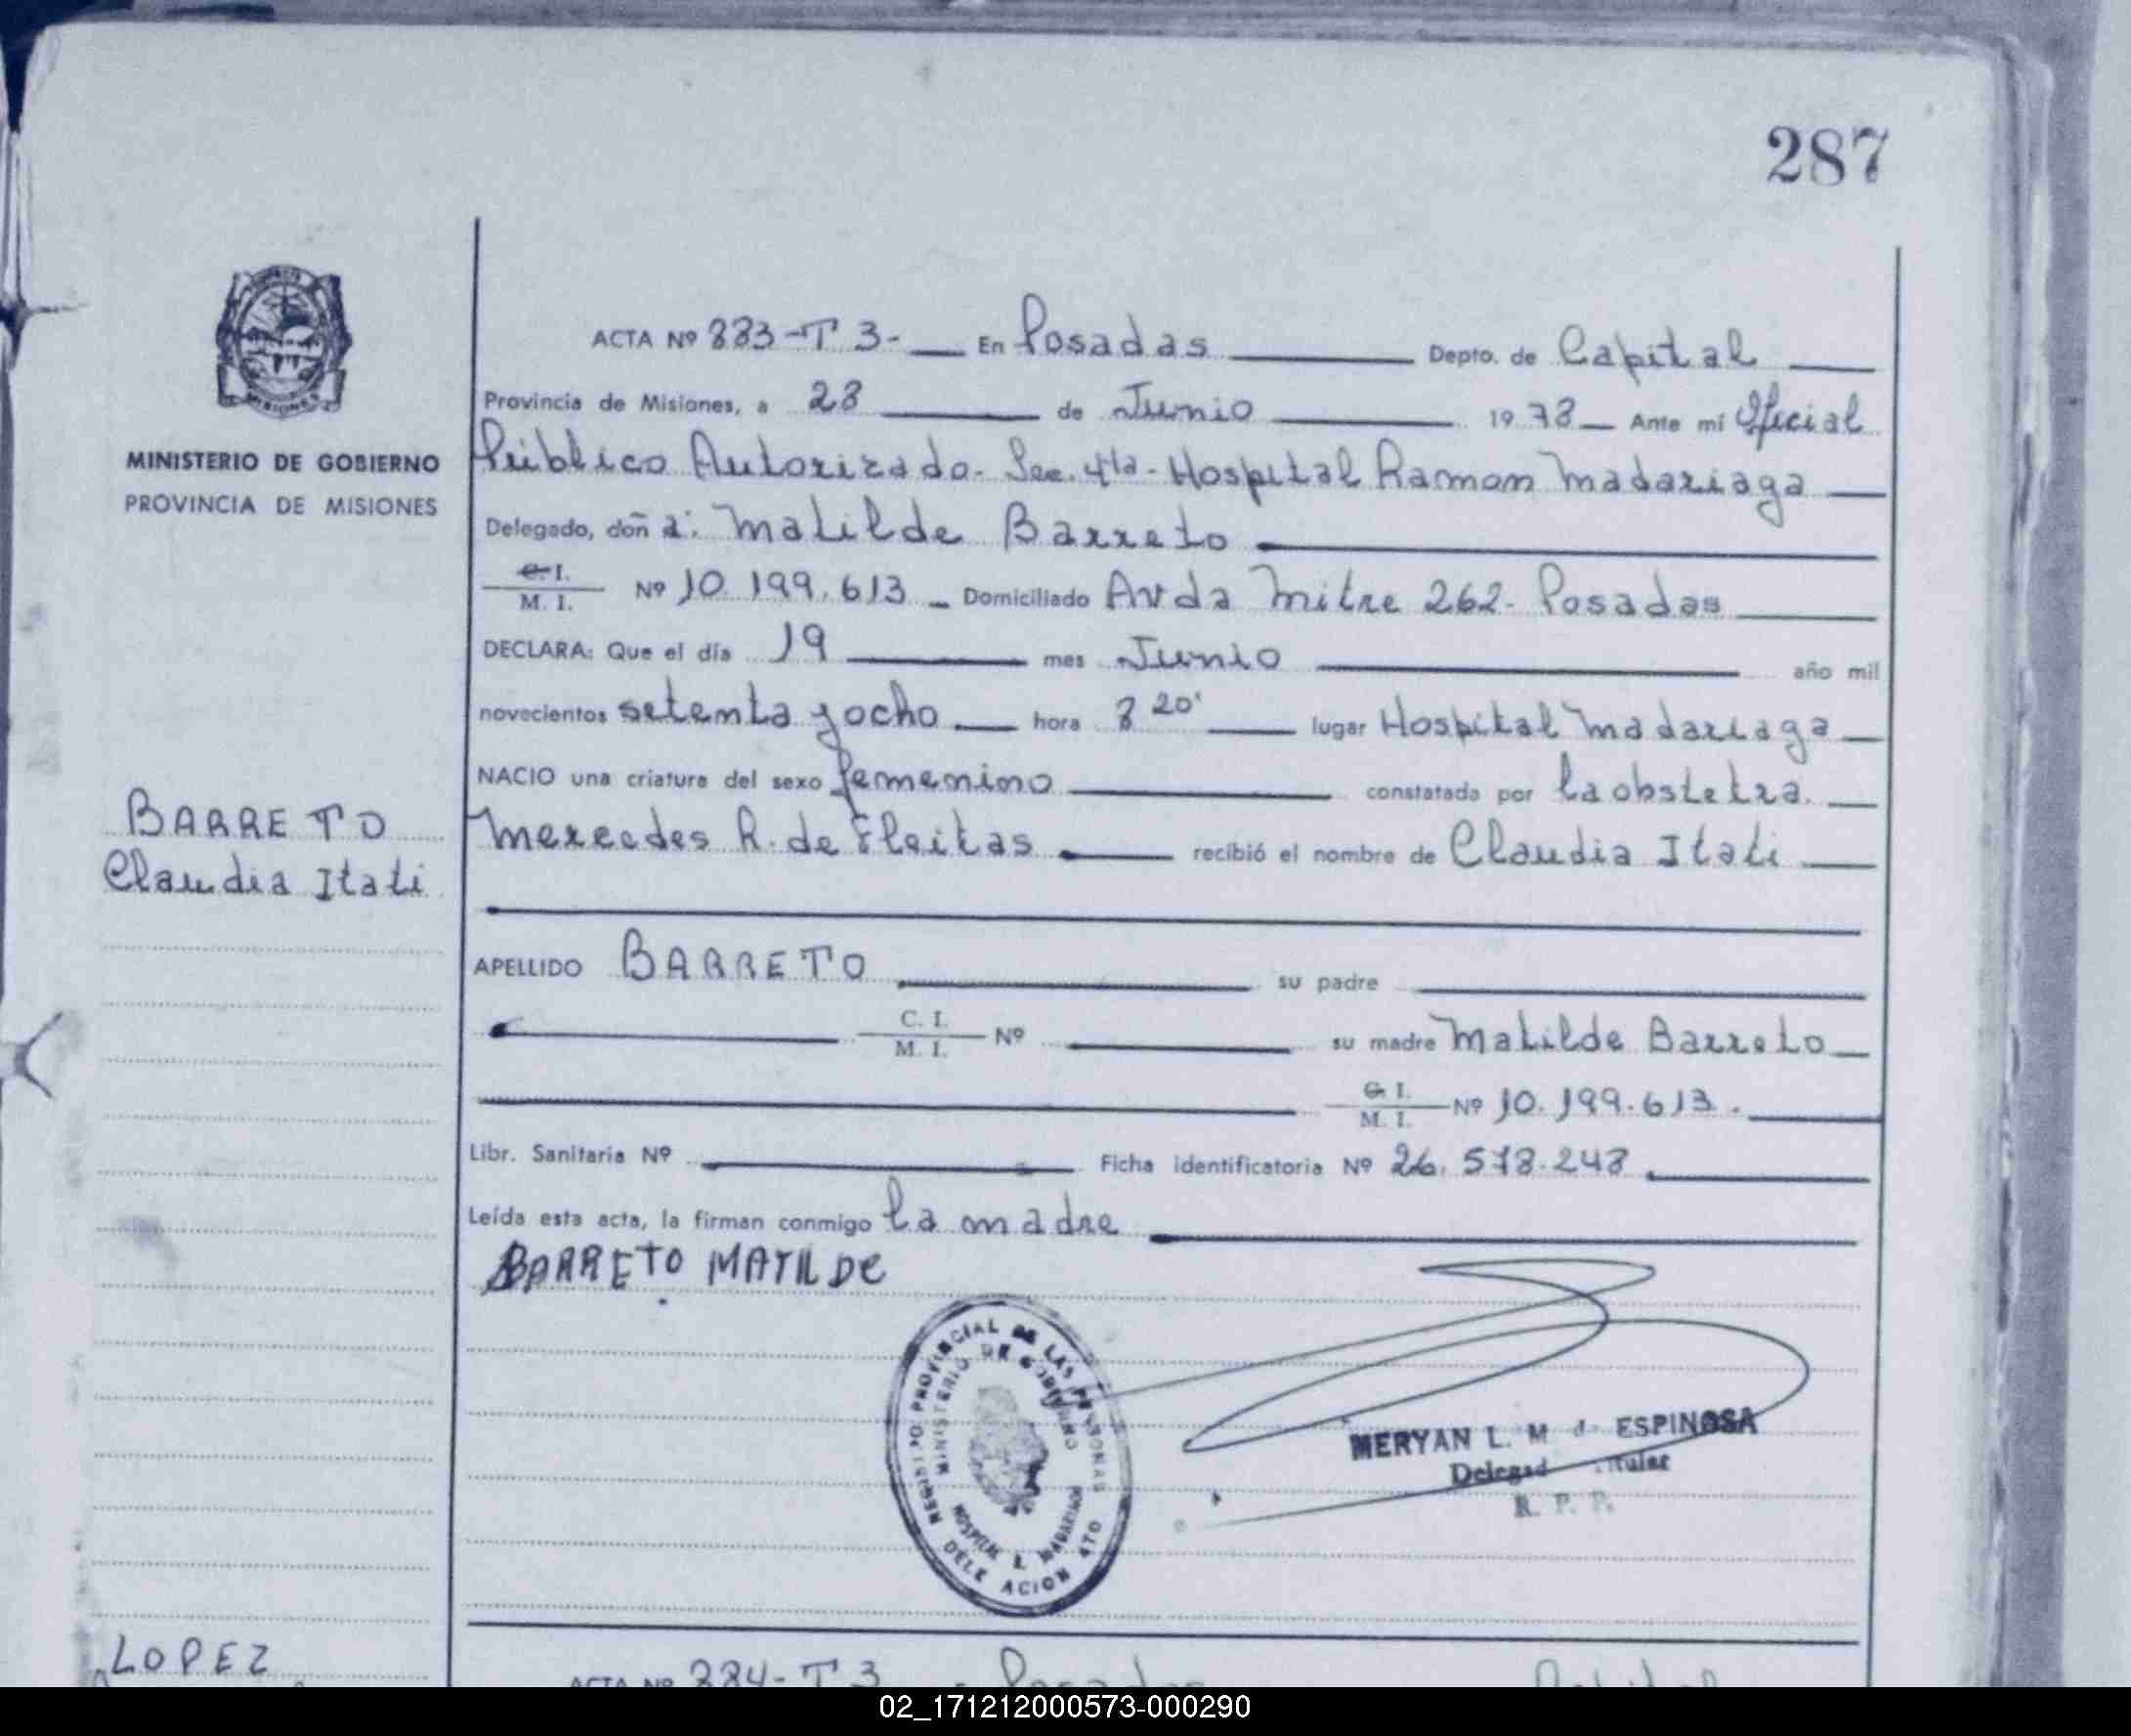 287
ACTA Nº 883-T 3- En Posadas Depto. de Capital
Provincia de Misiones, a 28 de Junio 1978 Ante mí Oficial
Público Autorizado- Sec. 4ta- Hospital Ramon Madariaga
MINISTERIO DE GOBIERNO
PROVINCIA DE MISIONES
Delegado, doñ a: Matilde Barreto
C. I. / M. I. Nº 10.199.613 Domiciliado Avda Mitre 262- Posadas
DECLARA: Que el día 19 mes Junio año mil
novecientos setenta y ocho hora 8 20' lugar Hospital Madariaga
NACIO una criatura del sexo femenino constatada por la obstetra.
BARRETO
Claudia Itati
Mercedes R. de Fleitas recibió el nombre de Claudia Itati
APELLIDO BARRETO su padre
C. I. / M. I. Nº su madre Matilde Barreto
C. I. / M. I. Nº 10.199.613.
Libr. Sanitaria Nº Ficha identificatoria Nº 26.578.248
Leída esta acta, la firman conmigo la madre
BARRETO MATILDE
REGISTRO PROVINCIAL DE LAS PERSONAS
MINISTERIO DE GOBIERNO
HOSPITAL R. MADARIAGA
DELEGACION 4TO
MERYAN L. M de ESPINOSA
Delegad Titular
R. P. P.
LOPEZ
ACTA Nº 884-T 3 Posadas Capital
02_171212000573-000290